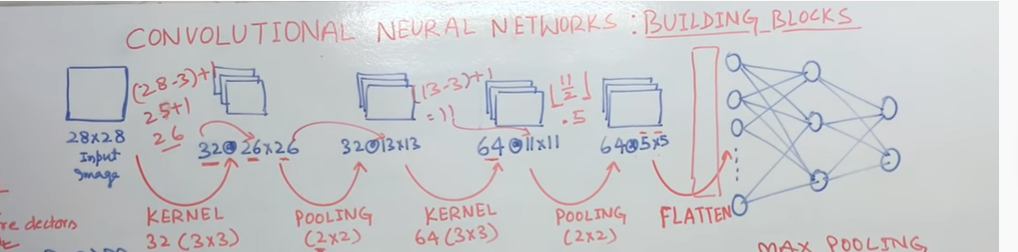 CONVOLUTIONAL NEURAL NETWORKS : BUILDING BLOCKS
28x28
Input
Image
(28-3)+1
25+1
26
32@26x26
32@13x13
(13-3)+1
=11
64@11x11
⌊11/2⌋
.5
64@5x5
KERNEL
32 (3x3)
POOLING
(2x2)
KERNEL
64 (3x3)
POOLING
(2x2)
FLATTEN
re dectors
MAX POOLING